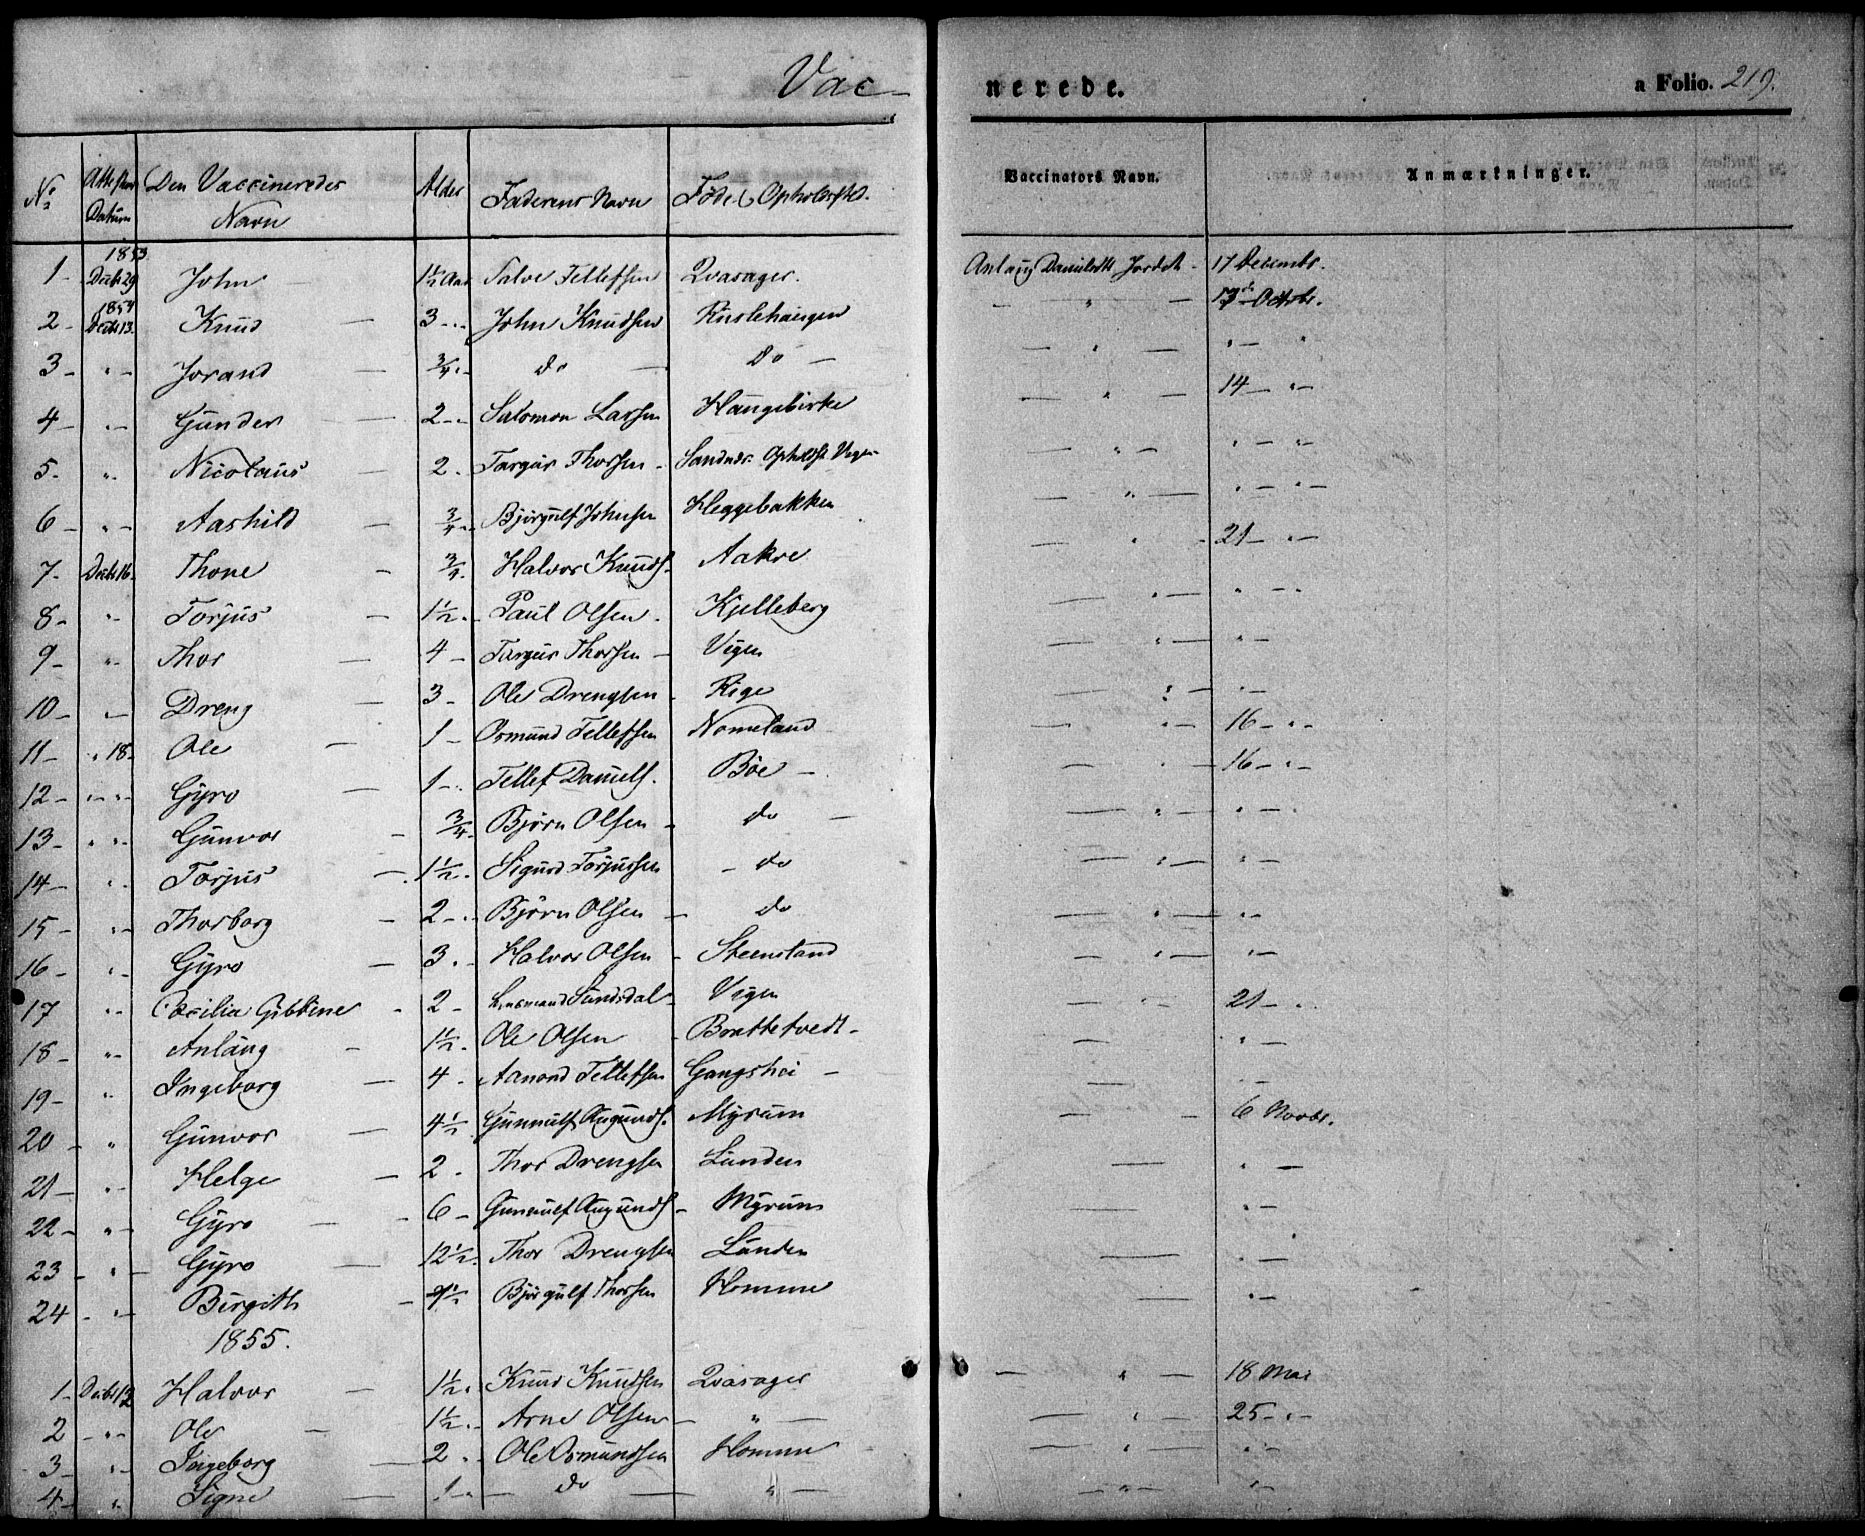 Vac-
nerede. a Folio. 219.
No Attestens Datum Den Vaccineredes Navn Alder Faderens Navn Føde- Opholdssted. Vaccinators Navn. Anmærkninger.
1853
1- Decbr 29 John 1½ Aar Salve Tellefsen Qvasager. Anlaug Danielsdtr Jordet - 17 Decembr.
1854
2- Decbr 13. Knud - 3 - John Knudsen - " - 17de Octobr.
3- " - Jorand - ¾ - do - do - - " - " - "
4- " - Gunder - 2 - Salomon Larsen Haugebirke - " - 14 - " -
5. " Nicolaus - 2. Targeir Thorsen - Sandnes. Opholdst. Vigen - " - " - " -
6- " - Aashild - ¾ - Bjørgulf Johnsen Heggebakken - " - " - " -
7- Decbr 16. Thone - ¾. Halvor Knuds. Aakre - " - 21 - " -
8- " - Torjus - 1½. Paul Olsen. Kjelleberg - " - " - " -
9- " - Thor - 4 - Targeir Thorsen - Vigen - " - " -
10- " - Dreng - 3 - Ole Drengsen - Rige - " - " -
11- " 18- Ole - 1 - Osmund Tellefsen Nomeland - " - 16 - " -
12- " - " - Gyro - 1 - Tellef Daniels. Bøe - - " - 16 - " -
13- " " - Gunvor - ¾. Bjørn Olsen - do - - " - " -
14- " - Torjus - 1½. Sigurd Torjussen - do - " - " -
15- " - Thorborg - 2 - Bjørn Olsen - do - " - " -
16- " - Gyro - 3. - Halvor Olsen - Steensland - " - " -
17 " - Cæcilia Gibbine - 2 - Lensmand Sundsdal - Vigen - " - 21 - "
18- " - Anlaug - 1½. Ole Olsen - Brattetvedt - - " -
19- " Ingeborg - 4 - Aanond Tellefsen Gangshei - - " -
20- " Gunvor - 4½ Gunnulf Augunds. Myrum - - 6 Novbr.
21- " - Helge - 2. Thor Drengsen Lunden - " -
22- " - Gyro - 6 - Gunnulf Augunds - Myrum - " -
23- " - Gyro - 12½. Thor Drengsen Lunden - " -
24- " - Birgith - Bjørgulf Thorsen Homme - " -
1855.
1- Decbr 12 Halvor - 1½. Knud Knudsen Qvasager - " - 18 Mai
2 - " - Ole - 1½ - Arne Olsen - " - - " - 25 - " -
3- " - Ingeborg - 2 - Ole Osmundsen Homme - " - " -
4- " Signe - 1 - do - " - - " - " -